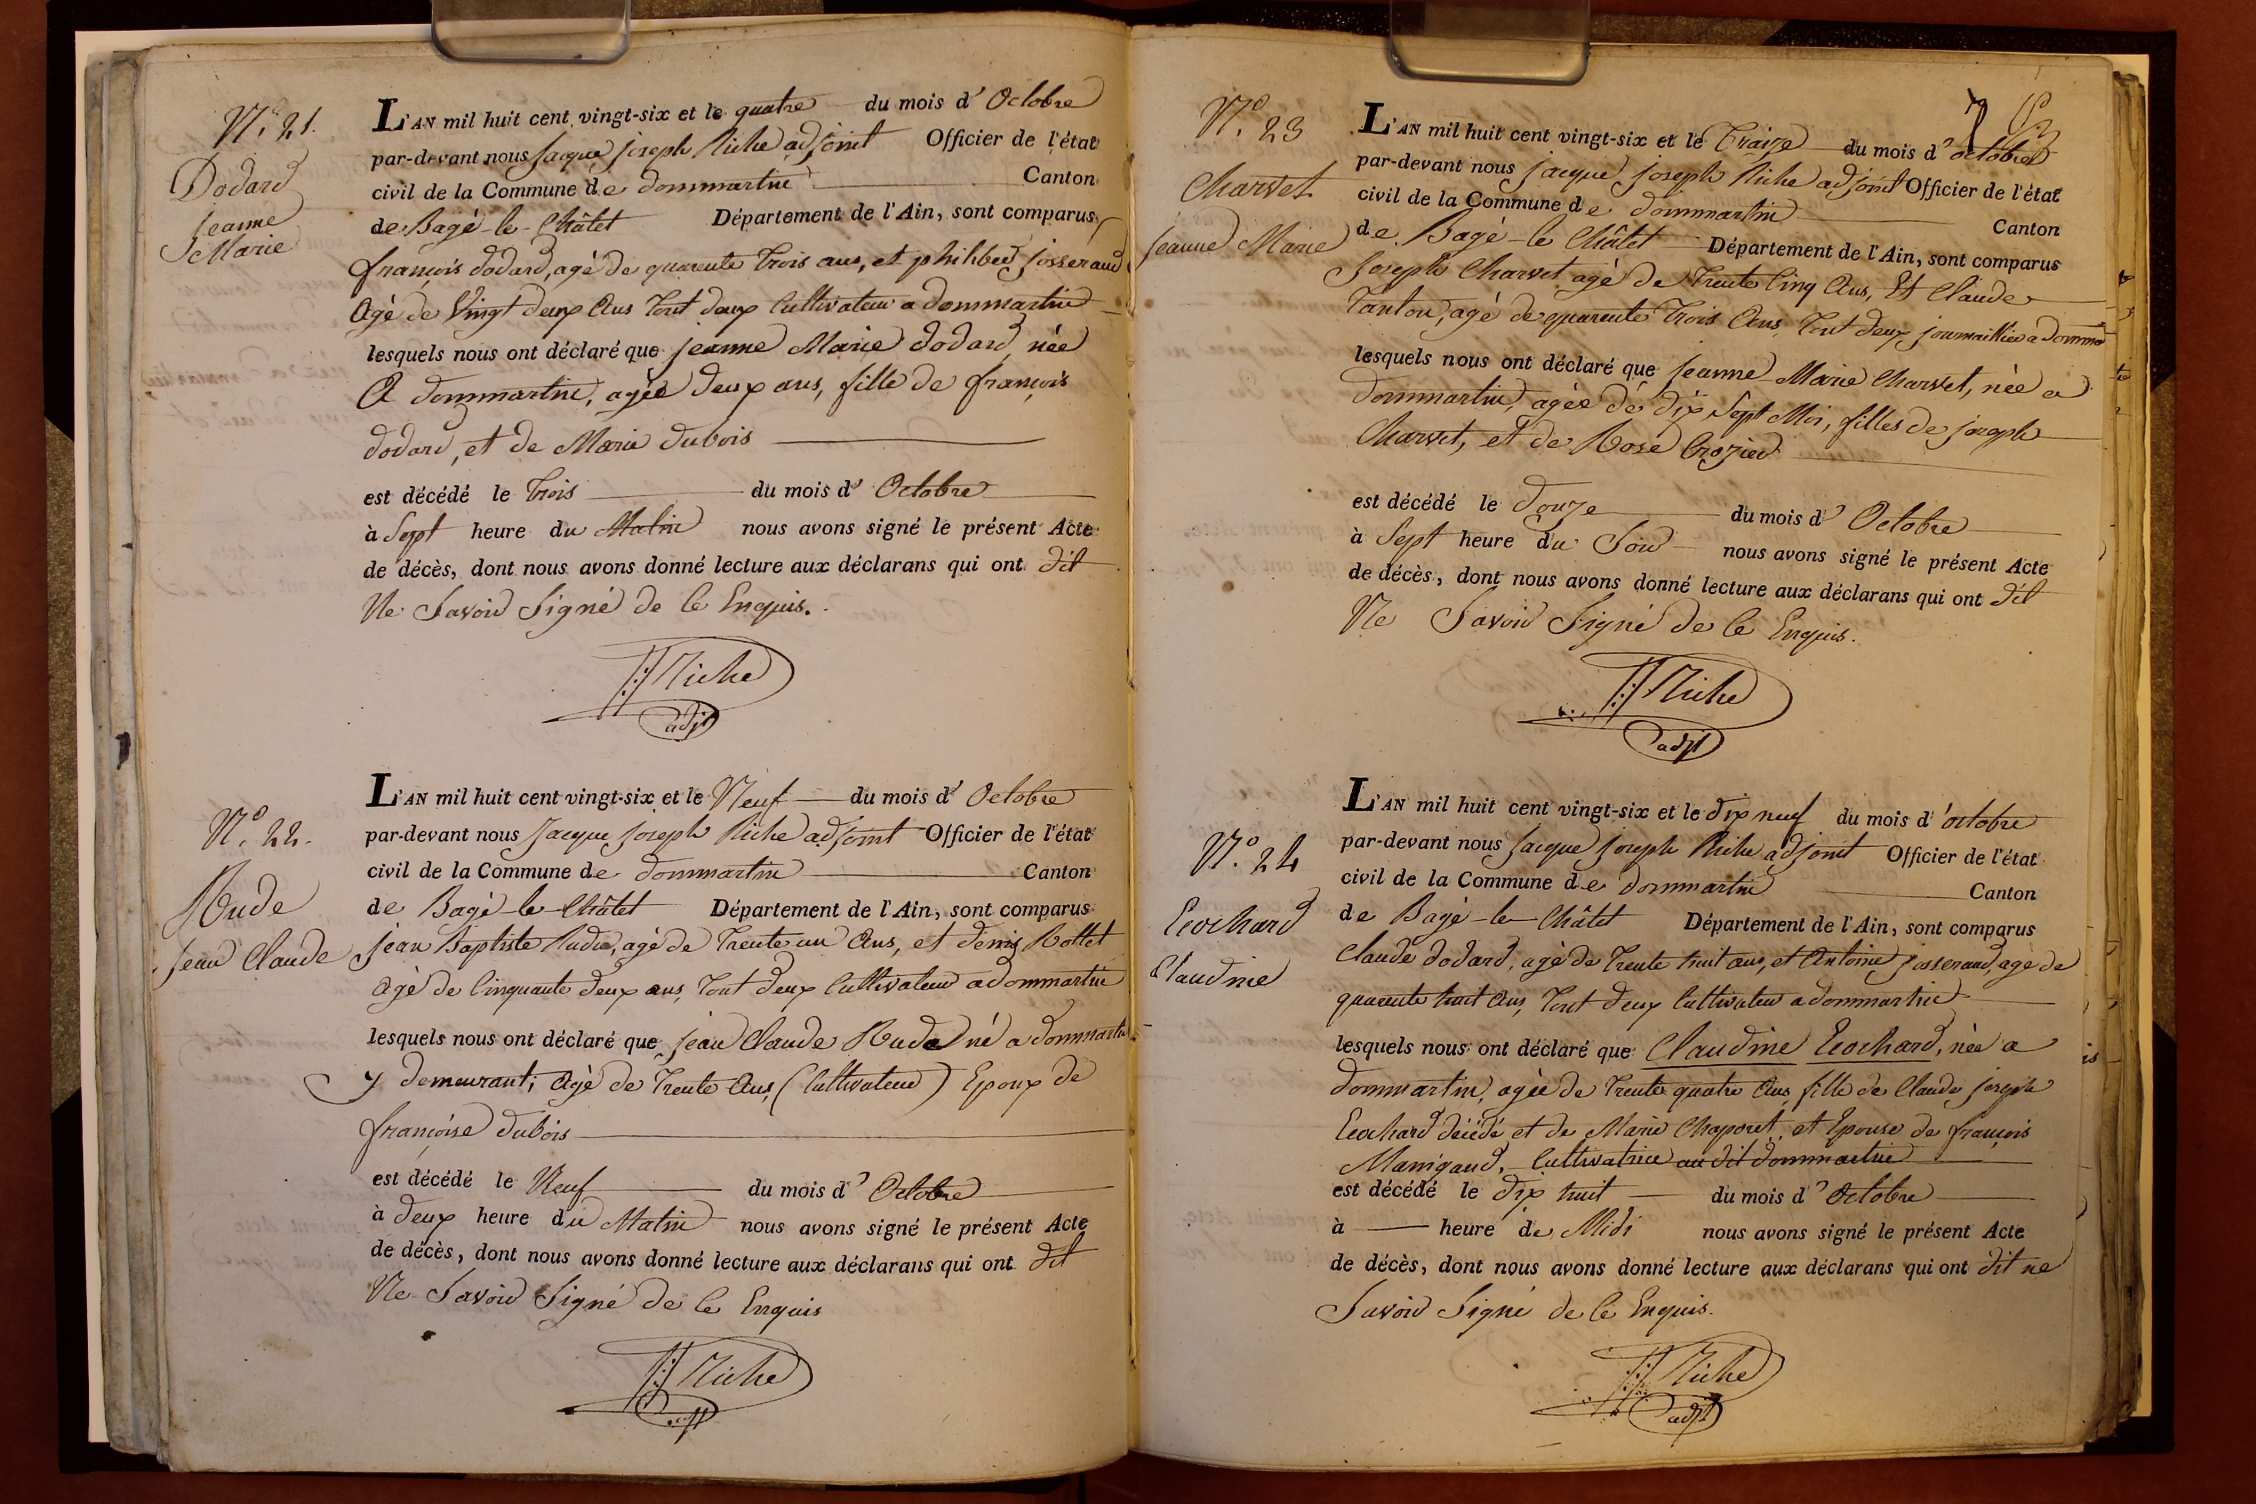 N.° 21.
Dodard
jeanne
Marie
L'AN mil huit cent vingt-six et le quatre du mois d' Octobre
par-devant nous Jacque joseph Riche adjoint Officier de l'état
civil de la Commune de dommartin Canton
de Bagé-le-Châtet Département de l'Ain, sont comparus
françois dodard, agé de quarente trois ans, et philibed josserand
Agé de Vingt deux Ans tout deux Cultivateur a dommartin
lesquels nous ont déclaré que jeanne Marie dodard née
A dommartin, agée deux ans, fille de françois
dodard, et de Marie dubois
est décédé le trois du mois d' Octobre
à Sept heure du Matin nous avons signé le présent Acte
de décès, dont nous avons donné lecture aux déclarans qui ont dit
Ne Savoir Signé de ce Enquis.
Riche
adjt
N.° 22.
Rude
jean Claude
L'AN mil huit cent vingt-six et le Neuf du mois d' Octobre
par-devant nous Jacque joseph Riche adjoint Officier de l'état
civil de la Commune de dommartin Canton
de Bagé-le-Châtet Département de l'Ain, sont comparus
jean Baptiste Rude, agé de trente un Ans, et denis Rottet
agé de Cinquante deux ans, tout deux Cultivateur a dommartin
lesquels nous ont déclaré que jean Claude Rude né a dommartin
y demeurant, Agé de trente Ans, (Cultivateur) Epoux de
françoise dubois
est décédé le Neuf du mois d' Octobre
à deux heure du Matin nous avons signé le présent Acte
de décès, dont nous avons donné lecture aux déclarans qui ont dit
Ne Savoir Signé de ce Enquis
Riche
N.° 23
Charvet
jeanne Marie
L'AN mil huit cent vingt-six et le traize du mois d' octobre
par-devant nous jacque joseph Riche adjoint Officier de l'état
civil de la Commune de dommartin Canton
de Bagé-le Châtet Département de l'Ain, sont comparus
Joseph Charvet agé de trente Cinq Ans, Et Claude
tanton, agé de quarente trois Ans, tout deux journaillier a domma
lesquels nous ont déclaré que jeanne Marie Charvet, née a
dommartin, agée de dix Sept Moi, filles de joseph
Charvet, et de Rose Crozier
est décédé le douze du mois d' Octobre
à Sept heure du Soir nous avons signé le présent Acte
de décès, dont nous avons donné lecture aux déclarans qui ont dit
Ne Savoir Signé de ce Enquis.
Riche
adjt
N.° 24
Ecochard
Claudine
L'AN mil huit cent vingt-six et le dix neuf du mois d' octobre
par-devant nous Jacque joseph Riche adjoint Officier de l'état
civil de la Commune de dommartin Canton
de Bagé-le-Châtet Département de l'Ain, sont comparus
Claude dodard, agé de trente huit ans, et Antoine josserand, agé de
quarente huit Ans, tout deux Cultivateur a dommartin
lesquels nous ont déclaré que Claudine Ecochard, née a
dommartin, agée de trente quatre Ans, fille de Claude joseph
Ecochard décédé et de Marie Chaporet et Epouse de françois
Manigaud, Cultivatrice au dit dommartin
est décédé le dix huit du mois d' Octobre
à heure de Midi nous avons signé le présent Acte
de décès, dont nous avons donné lecture aux déclarans qui ont dit ne
Savoir Signé de ce Enquis.
Riche
adjt